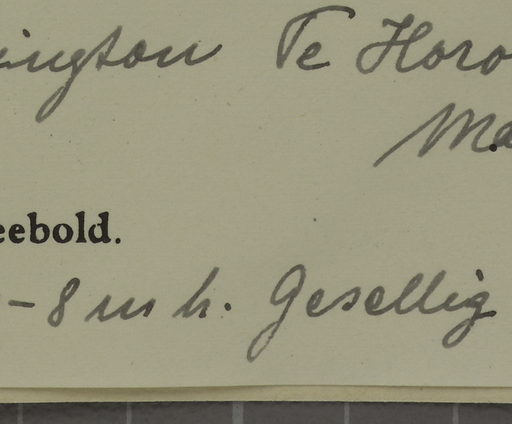 ington Te Horo
Ma
eebold.
-8 m h. Gesellig